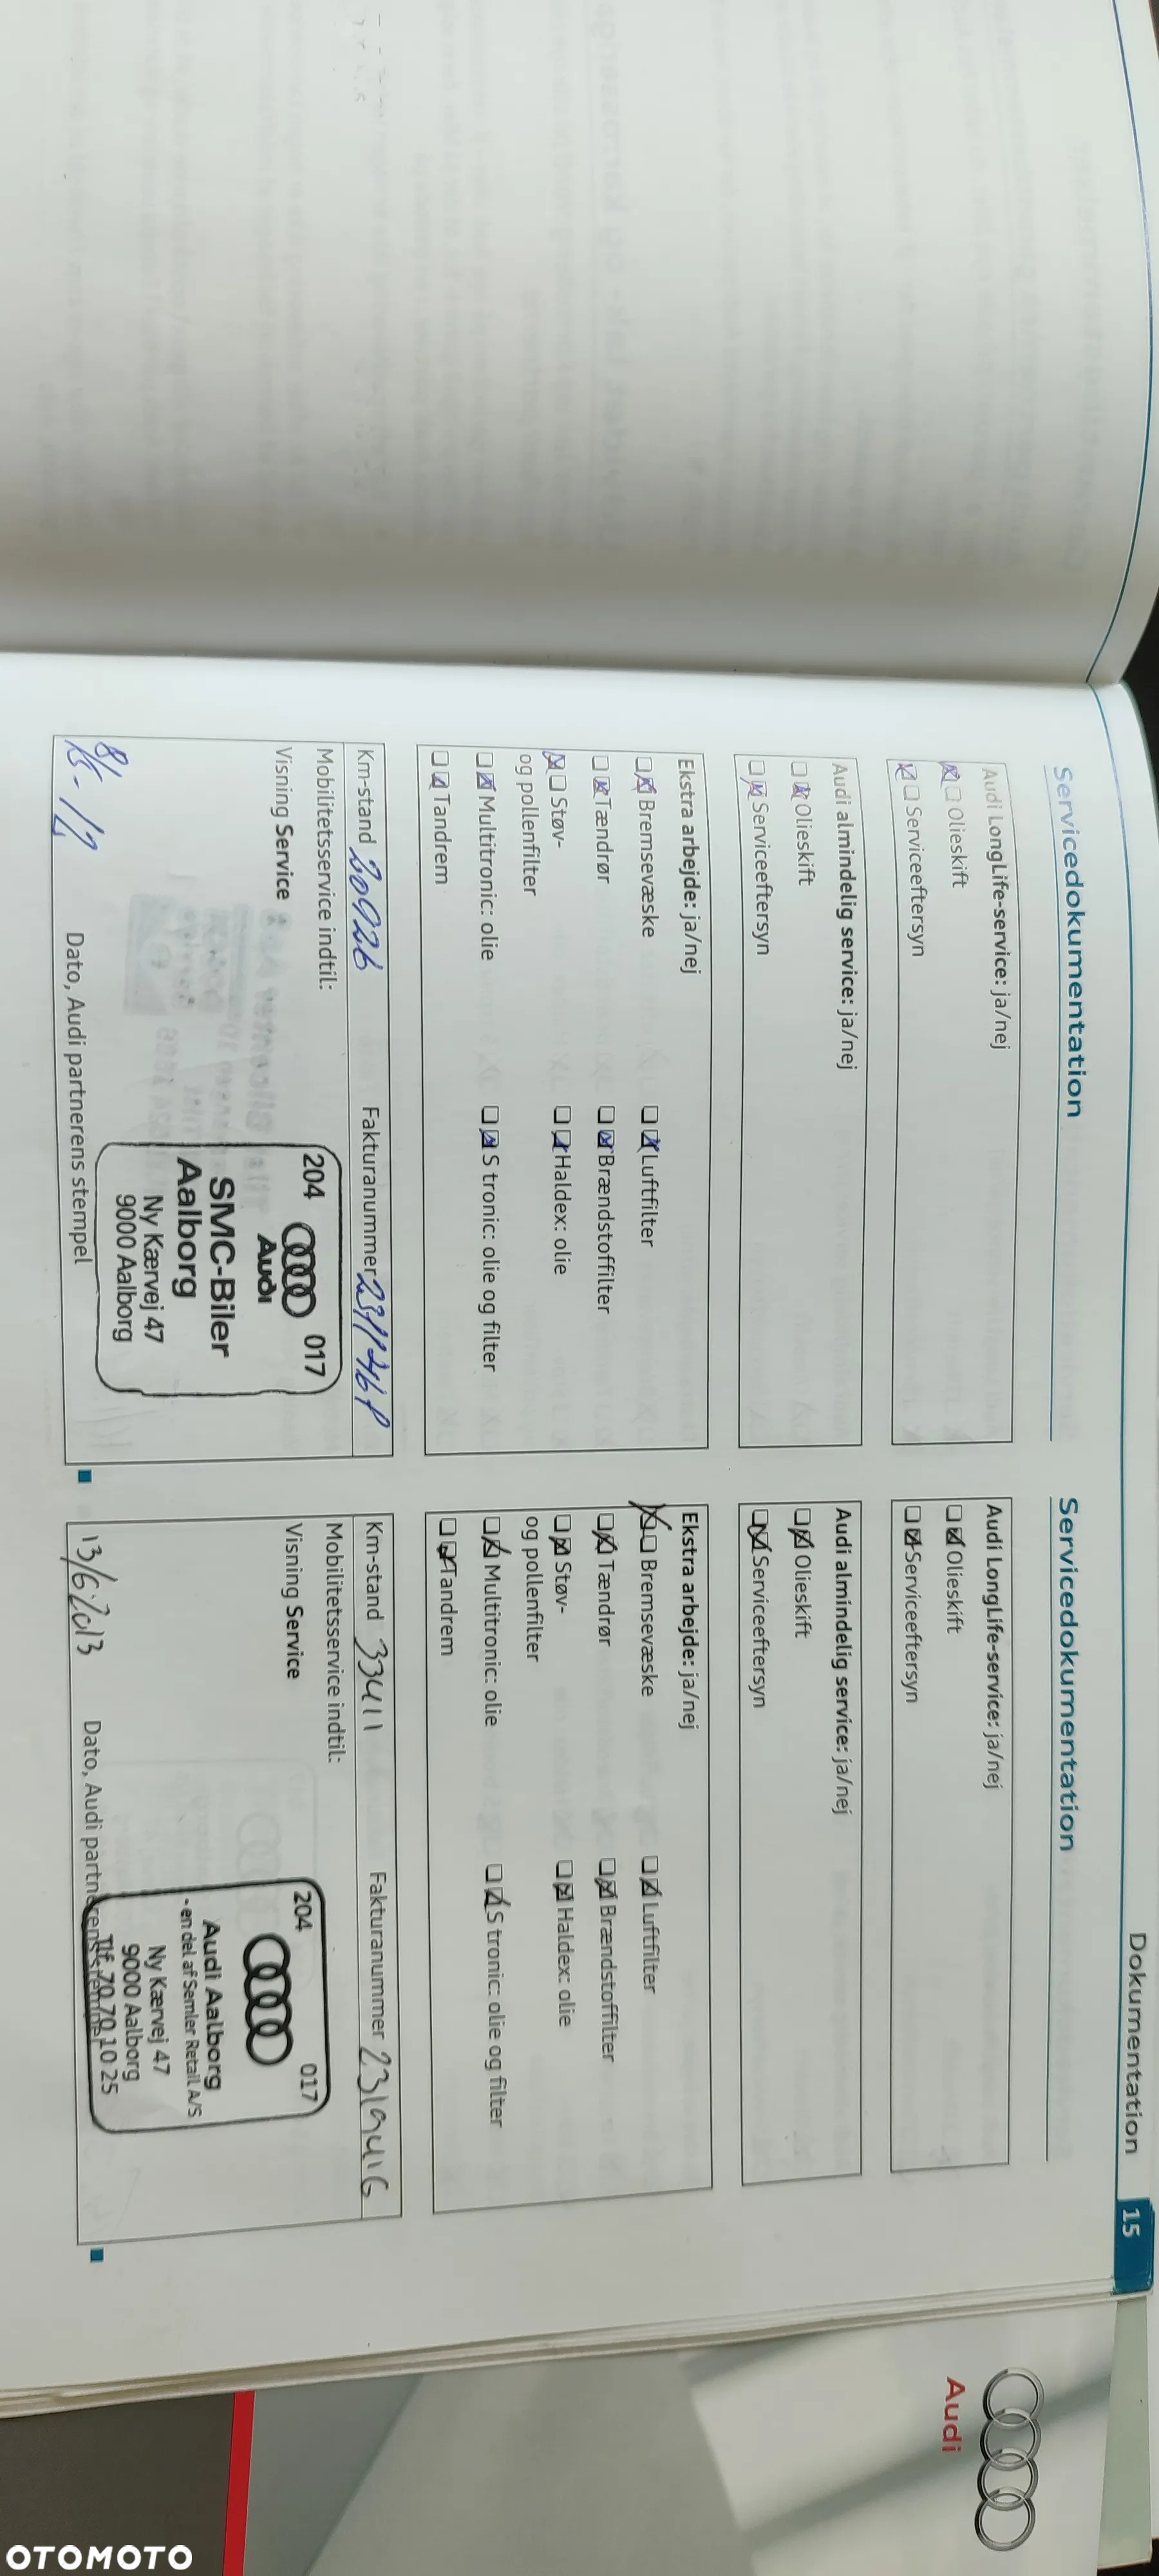 Dokumentation 15
Servicedokumentation
Audi LongLife-service: ja/nej
Olieskift
Serviceeftersyn
Audi almindelig service: ja/nej
Olieskift
Serviceeftersyn
Ekstra arbejde: ja/nej
Bremsevæske
Luftfilter
Tændrør
Brændstoffilter
Støv-
og pollenfilter
Haldex: olie
Multitronic: olie
S tronic: olie og filter
Tandrem
Km-stand 20926
Fakturanummer
Mobilitetsservice indtil:
Visning Service
204 017
Audi
SMC-Biler
Aalborg
Ny Kærvej 47
9000 Aalborg
Dato, Audi partnerens stempel
Servicedokumentation
Audi LongLife-service: ja/nej
Olieskift
Serviceeftersyn
Audi almindelig service: ja/nej
Olieskift
Serviceeftersyn
Ekstra arbejde: ja/nej
Bremsevæske
Luftfilter
Tændrør
Brændstoffilter
Støv-
og pollenfilter
Haldex: olie
Multitronic: olie
S tronic: olie og filter
Tandrem
Km-stand 33411
Fakturanummer
Mobilitetsservice indtil:
Visning Service
204 017
Audi Aalborg
- en del af Semler Retail A/S
Ny Kærvej 47
9000 Aalborg
Tlf. 70 70 10 25
13/6 2013
Dato, Audi partnerens stempel
Audi
OTOMOTO